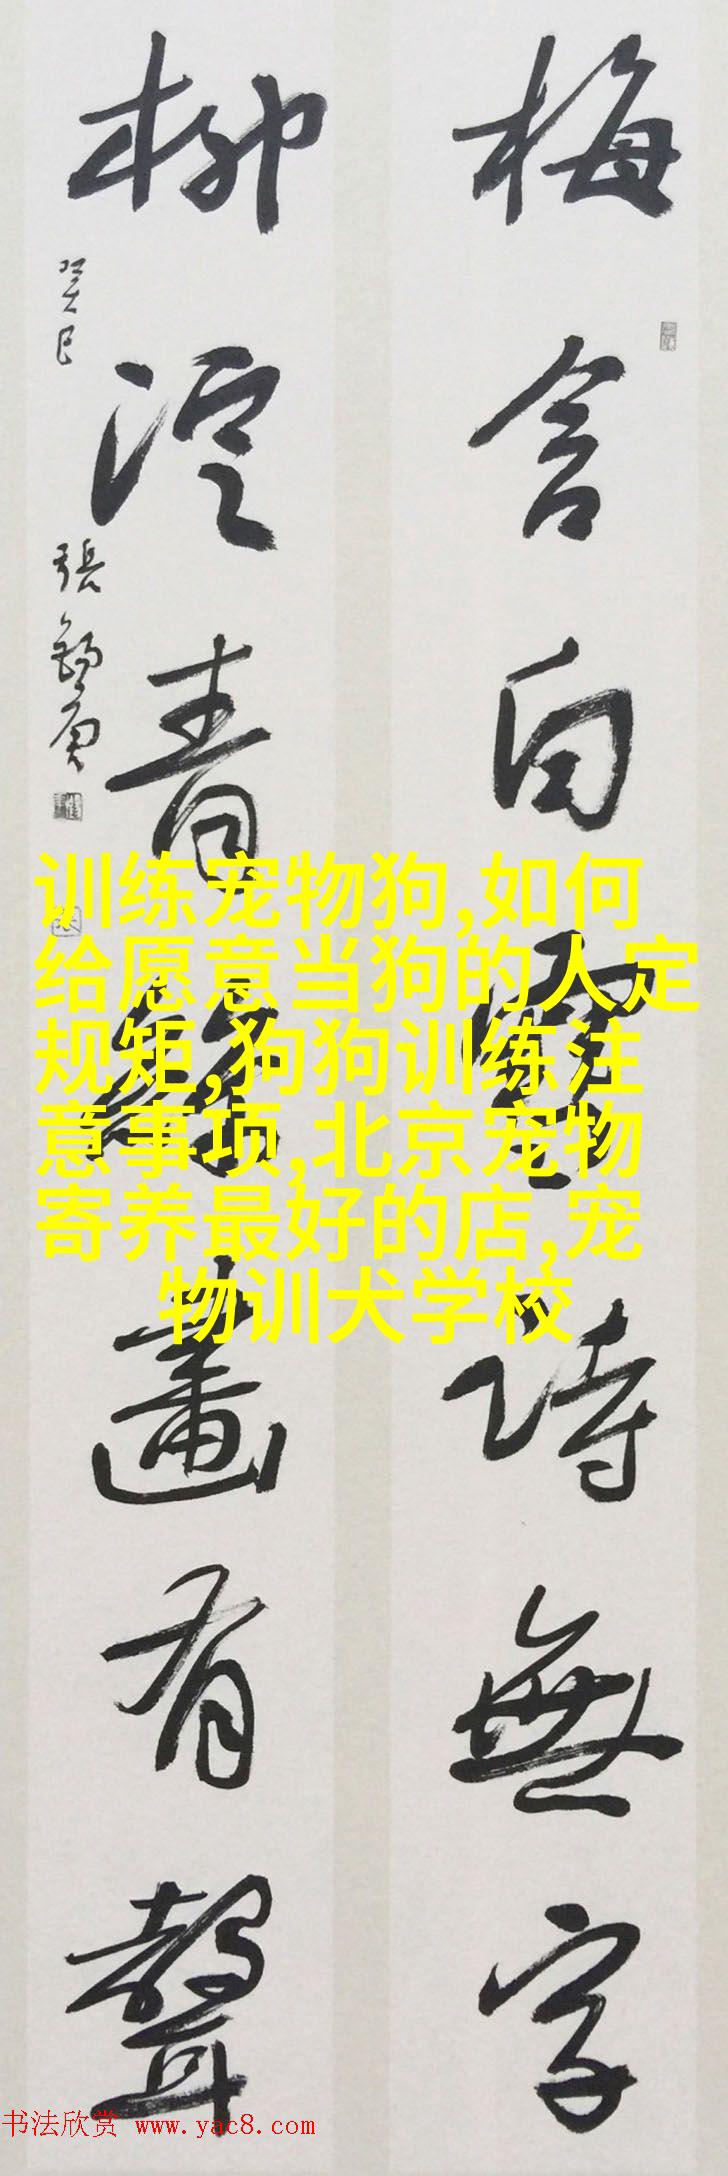 梅含白雪詩無字
柳青畫有聲
癸巳
張錫
训练宠物狗,如何
给愿意当狗的人定
规矩,狗狗训练注
意事项,北京宠物
寄养最好的店,宠
物训犬学校
书法欣赏 www.yac8.com